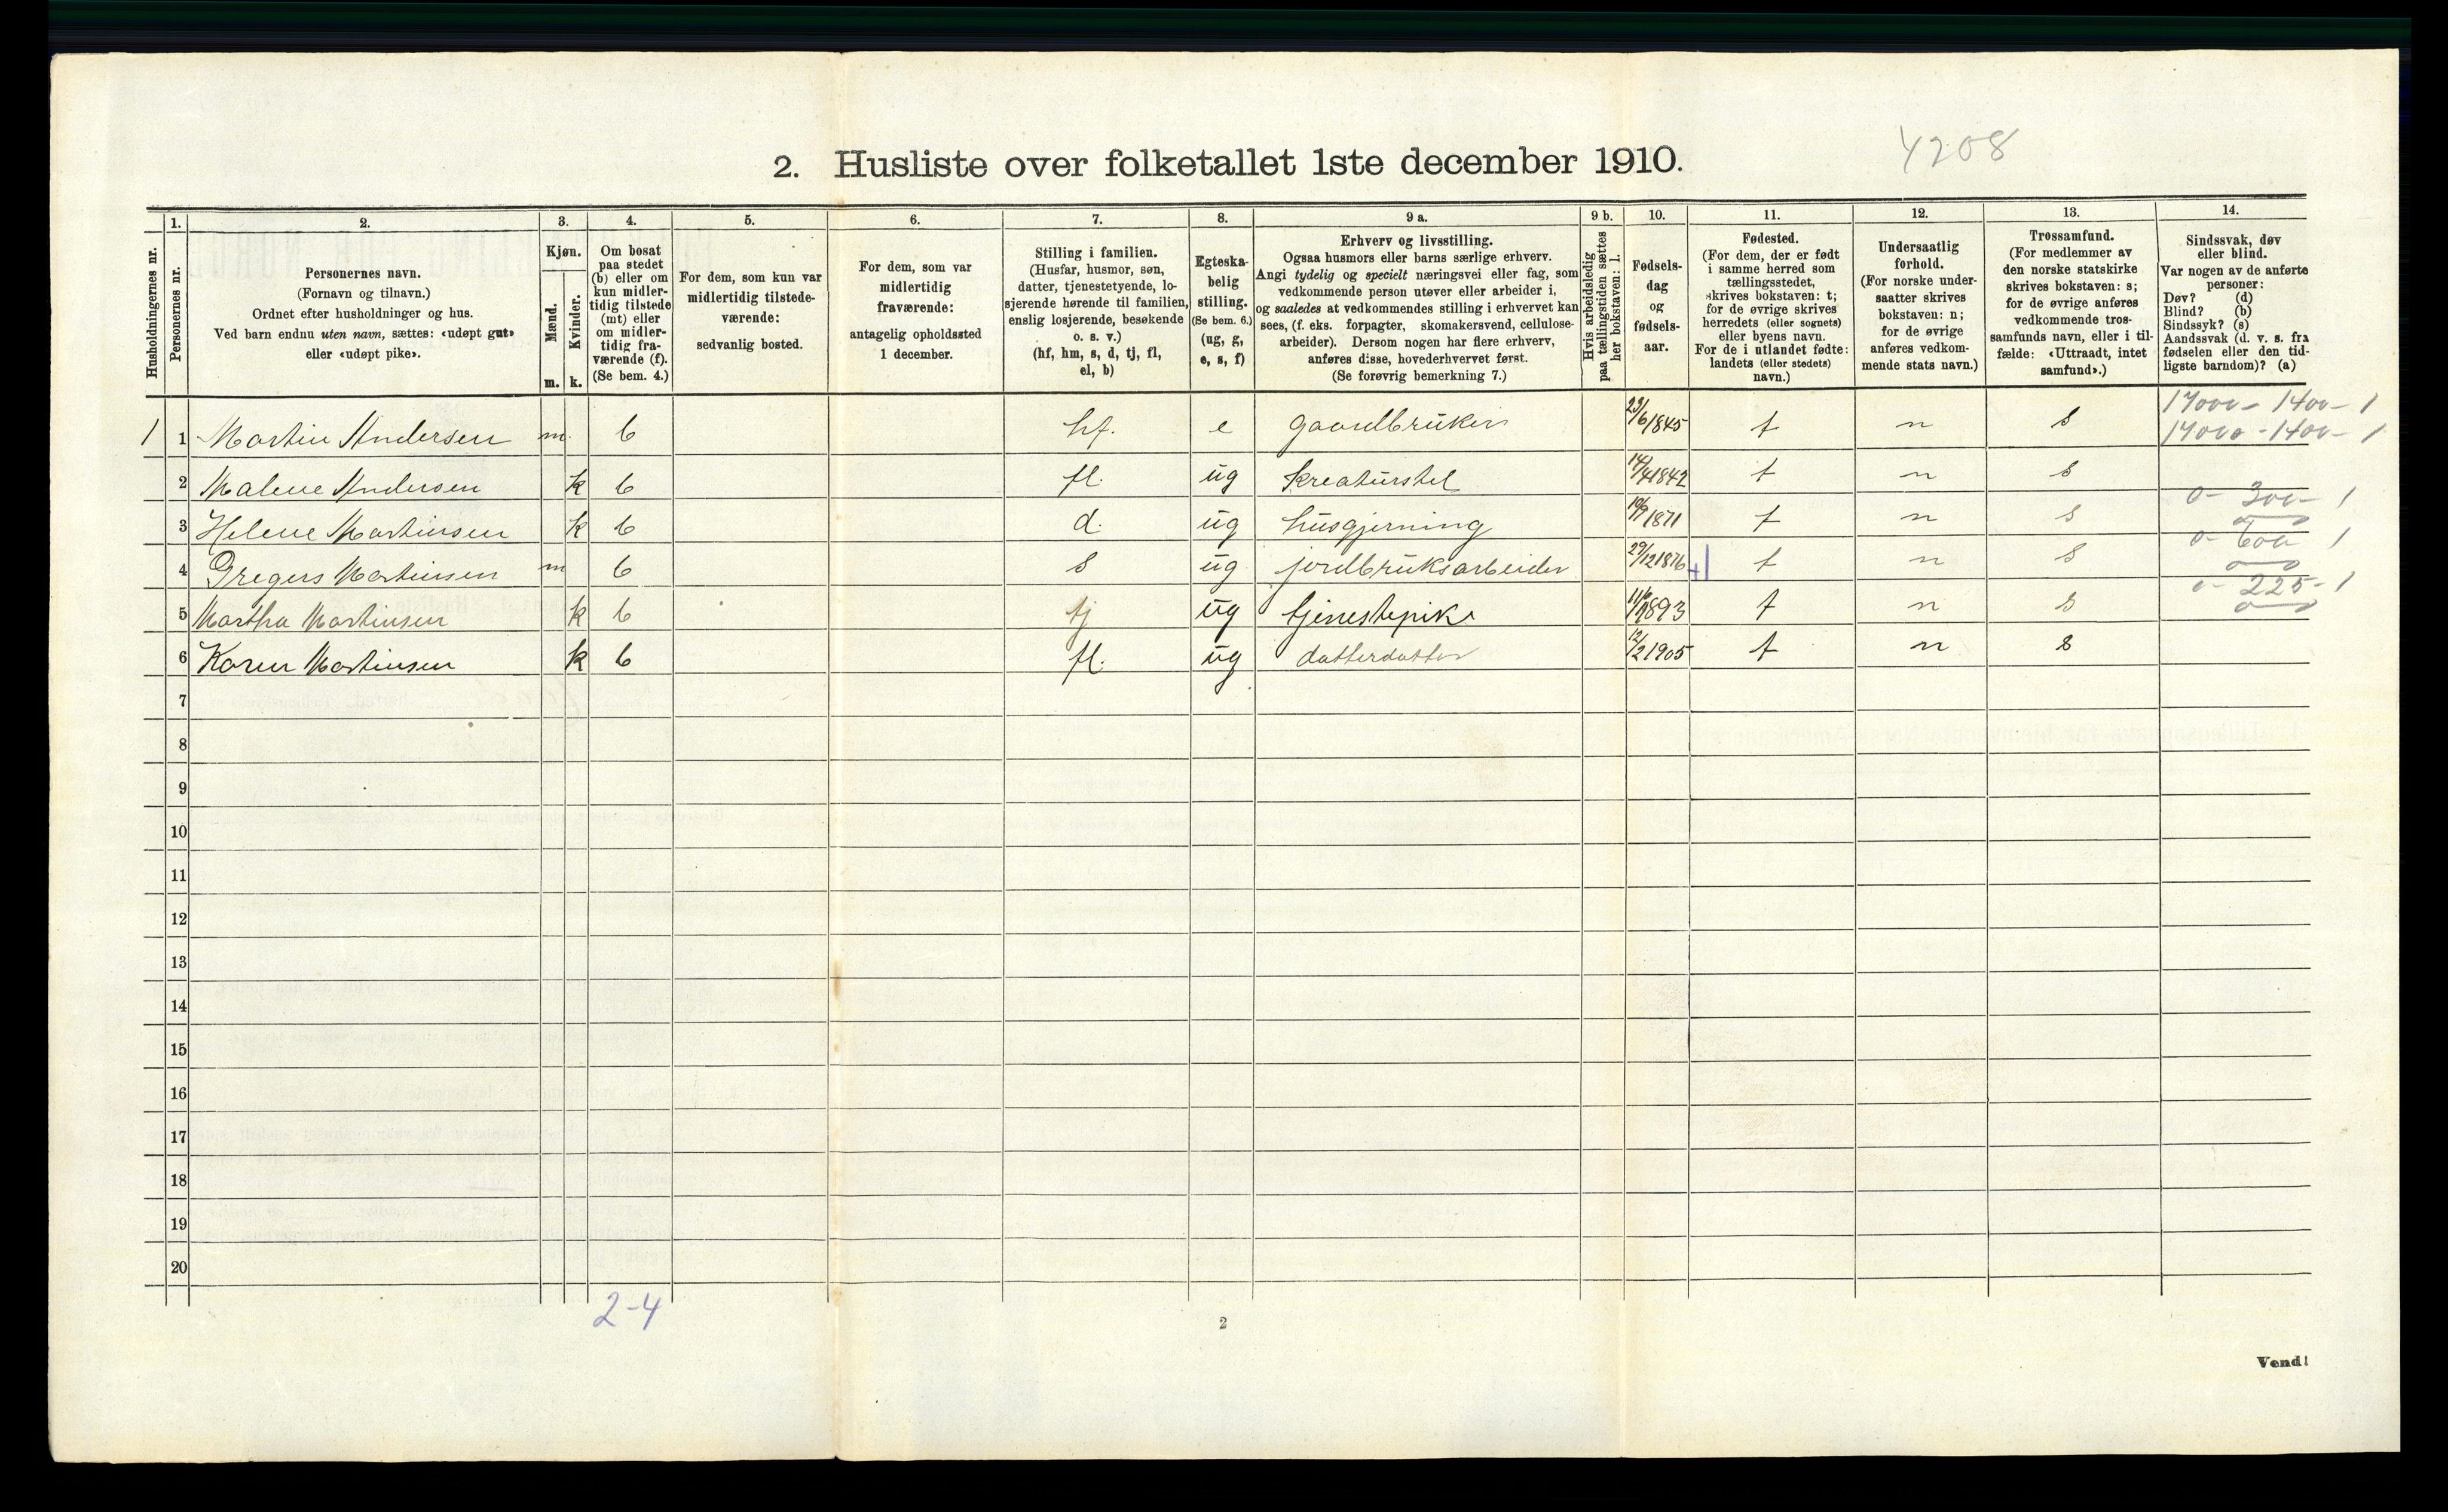 4208
2. Husliste over folketallet 1ste december 1910.
Husholdningernes nr.
1. Personernes nr.
2. Personernes navn.
(Fornavn og tilnavn.)
Ordnet efter husholdninger og hus.
Ved barn endnu uten navn, sættes: «udøpt gut»
eller «udøpt pike».
3. Kjøn.
Mænd. m.
Kvinder. k.
4. Om bosat
paa stedet
(b) eller om
kun midler-
tidig tilstede
(mt) eller
om midler-
tidig fra-
værende (f).
(Se bem. 4.)
5. For dem, som kun var
midlertidig tilstede-
værende:
sedvanlig bosted.
6. For dem, som var
midlertidig
fraværende:
antagelig opholdssted
1 december.
7. Stilling i familien.
(Husfar, husmor, søn,
datter, tjenestetyende, lo-
sjerende hørende til familien,
enslig losjerende, besøkende
o. s. v.)
(hf, hm, s, d, tj, fl,
el, b)
8. Egteska-
belig
stilling.
(Se bem. 6.)
(ug, g,
e, s, f)
9 a. Erhverv og livsstilling.
Ogsaa husmors eller barns særlige erhverv.
Angi tydelig og specielt næringsvei eller fag, som
vedkommende person utøver eller arbeider i,
og saaledes at vedkommendes stilling i erhvervet kan
sees, (f. eks. forpagter, skomakersvend, cellulose-
arbeider). Dersom nogen har flere erhverv,
anføres disse, hovederhvervet først.
(Se forøvrig bemerkning 7.)
9 b. Hvis arbeidsledig
paa tællingstiden sættes
her bokstaven: l.
10. Fødsels-
dag
og
fødsels-
aar.
11. Fødested.
(For dem, der er født
i samme herred som
tællingsstedet,
skrives bokstaven: t;
for de øvrige skrives
herredets (eller sognets)
eller byens navn.
For de i utlandet fødte:
landets (eller stedets)
navn.)
12. Undersaatlig
forhold.
(For norske under-
saatter skrives
bokstaven: n;
for de øvrige
anføres vedkom-
mende stats navn.)
13. Trossamfund.
(For medlemmer av
den norske statskirke
skrives bokstaven: s;
for de øvrige anføres
vedkommende tros-
samfunds navn, eller i til-
fælde: «Uttraadt, intet
samfund».)
14. Sindssvak, døv
eller blind.
Var nogen av de anførte
personer:
Døv? (d)
Blind? (b)
Sindssyk? (s)
Aandssvak (d. v. s. fra
fødselen eller den tid-
ligste barndom)? (a)
1 1 Martin Andersen m. b hf. e gaardbruker 23/6 1845 t n s 17000 - 1400 - 1
17000 - 1400 - 1
2 Malene Andersen k b fl. ug kreaturstel 14/4 1842 t n s
3 Helene Martinsen k b d. ug husgjerning 1871 t n s 0 - 300 - 1
4 Gregers Martinsen m b s ug jordbruksarbeider 29/12 1876 t n s 0 - 600 1
5 Martha Martinsen k b tj ug tjenestepike 1893 t n s 0 - 225 - 1
6 Karen Martinsen k b fl. ug datterdatter 12/2 1905 t n s
7
8
9
10
11
12
13
14
15
16
17
18
19
20
2-4
2
Vend!